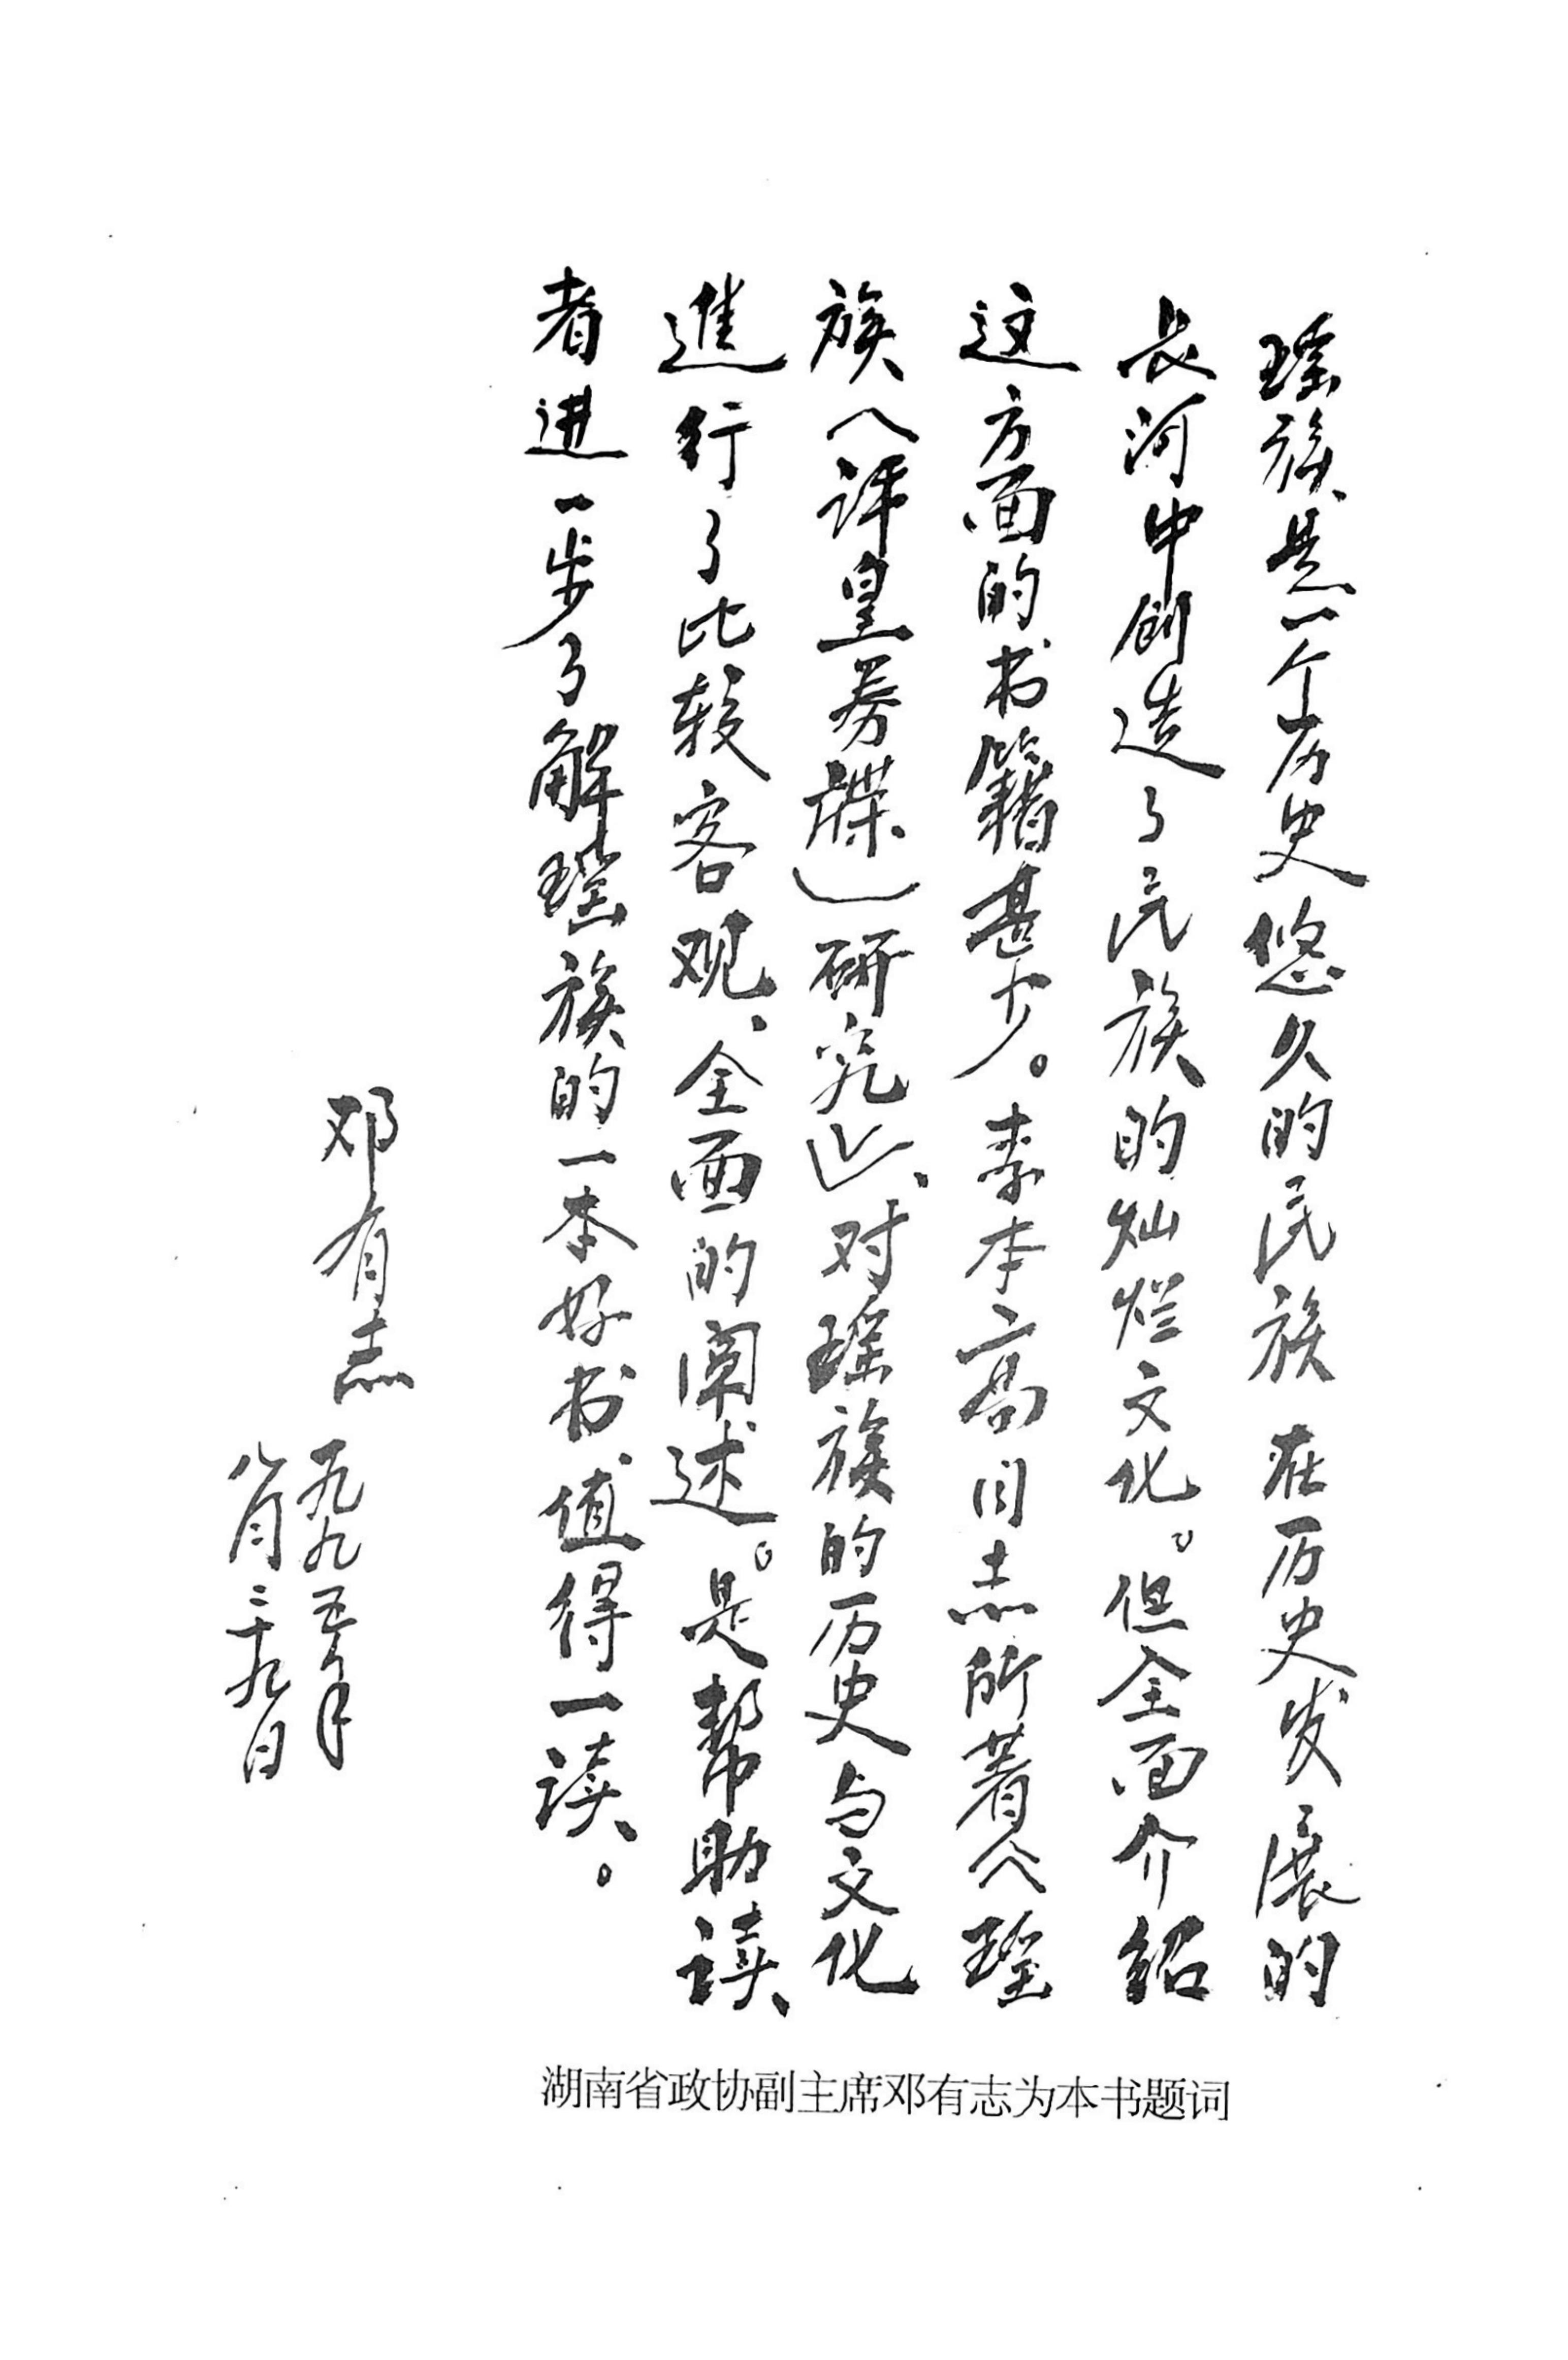 瑶族是一个历史悠久的民族 在历史发展的
长河中创造了民族的灿烂文化。但全面介绍
这方面的书籍甚少。李本高同志所著《瑶
族〈评皇券牒〉研究》，对瑶族的历史与文化
進行了比较客观、全面的阐述。是帮助读
者进一步了解瑶族的一本好书，值得一读。
邓有志
一九九五年
八月二十九日
湖南省政协副主席邓有志为本书题词